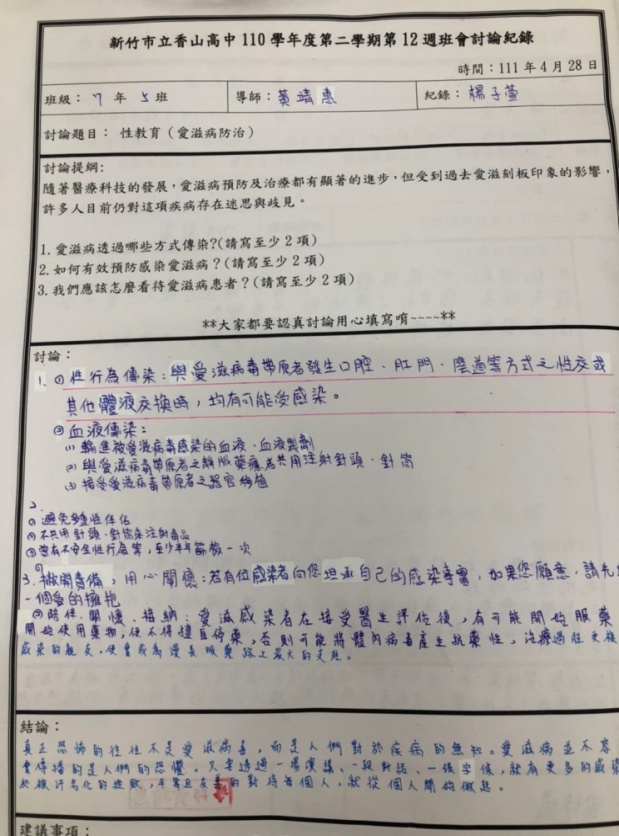 新竹市立香山高中 110 學年度第二學期第 12 週班會討論紀錄
時間：111 年 4 月 28 日
班級：7 年 5 班 導師：黃靖惠 紀錄：楊子萱
討論題目： 性教育（愛滋病防治）
討論提綱:
隨著醫療科技的發展，愛滋病預防及治療都有顯著的進步，但受到過去愛滋刻板印象的影響，
許多人目前仍對這項疾病存在迷思與歧見。
1. 愛滋病透過哪些方式傳染?(請寫至少 2 項)
2. 如何有效預防感染愛滋病？(請寫至少 2 項)
3. 我們應該怎麼看待愛滋病患者？(請寫至少 2 項)
**大家都要認真討論用心填寫唷~~~~**
討論：
1. ① 性行為傳染：與愛滋病毒帶原者發生口腔、肛門、陰道等方式之性交或
其他體液交換時，均有可能受感染。
② 血液傳染：
(1) 輸進被愛滋病毒感染的血液、血液製劑
(2) 與愛滋病毒帶原者之靜脈藥癮者共用注射針頭、針筒
(3) 接受愛滋病毒帶原者之器官移植
2.
① 避免多重性伴侶
② 不共用針頭、針筒來注射毒品
③ 若有不安全性行為者，至少半年篩檢一次
3. ① 撇開責備，用心關懷：若有位感染者向您坦承自己的感染事實，如果您願意，請先
一個愛的擁抱
② 陪伴、關懷、接納：愛滋感染者在接受醫生評估後，有可能開始服藥
開始使用藥物，便不得擅自停藥，否則可能將體內病毒產生抗藥性，治療過程更複
感染的親友，便會成為漫長服藥路上最大的支持。
結論：
真正恐怖的往往不是愛滋病毒，而是人們對於疾病的無知。愛滋病並不容
會傳播的是人們的恐懼。只要透過一場演講、一段對話、一張字條，就有更多的感染
的對待每個人，就從個人開始做起。
建議事項：